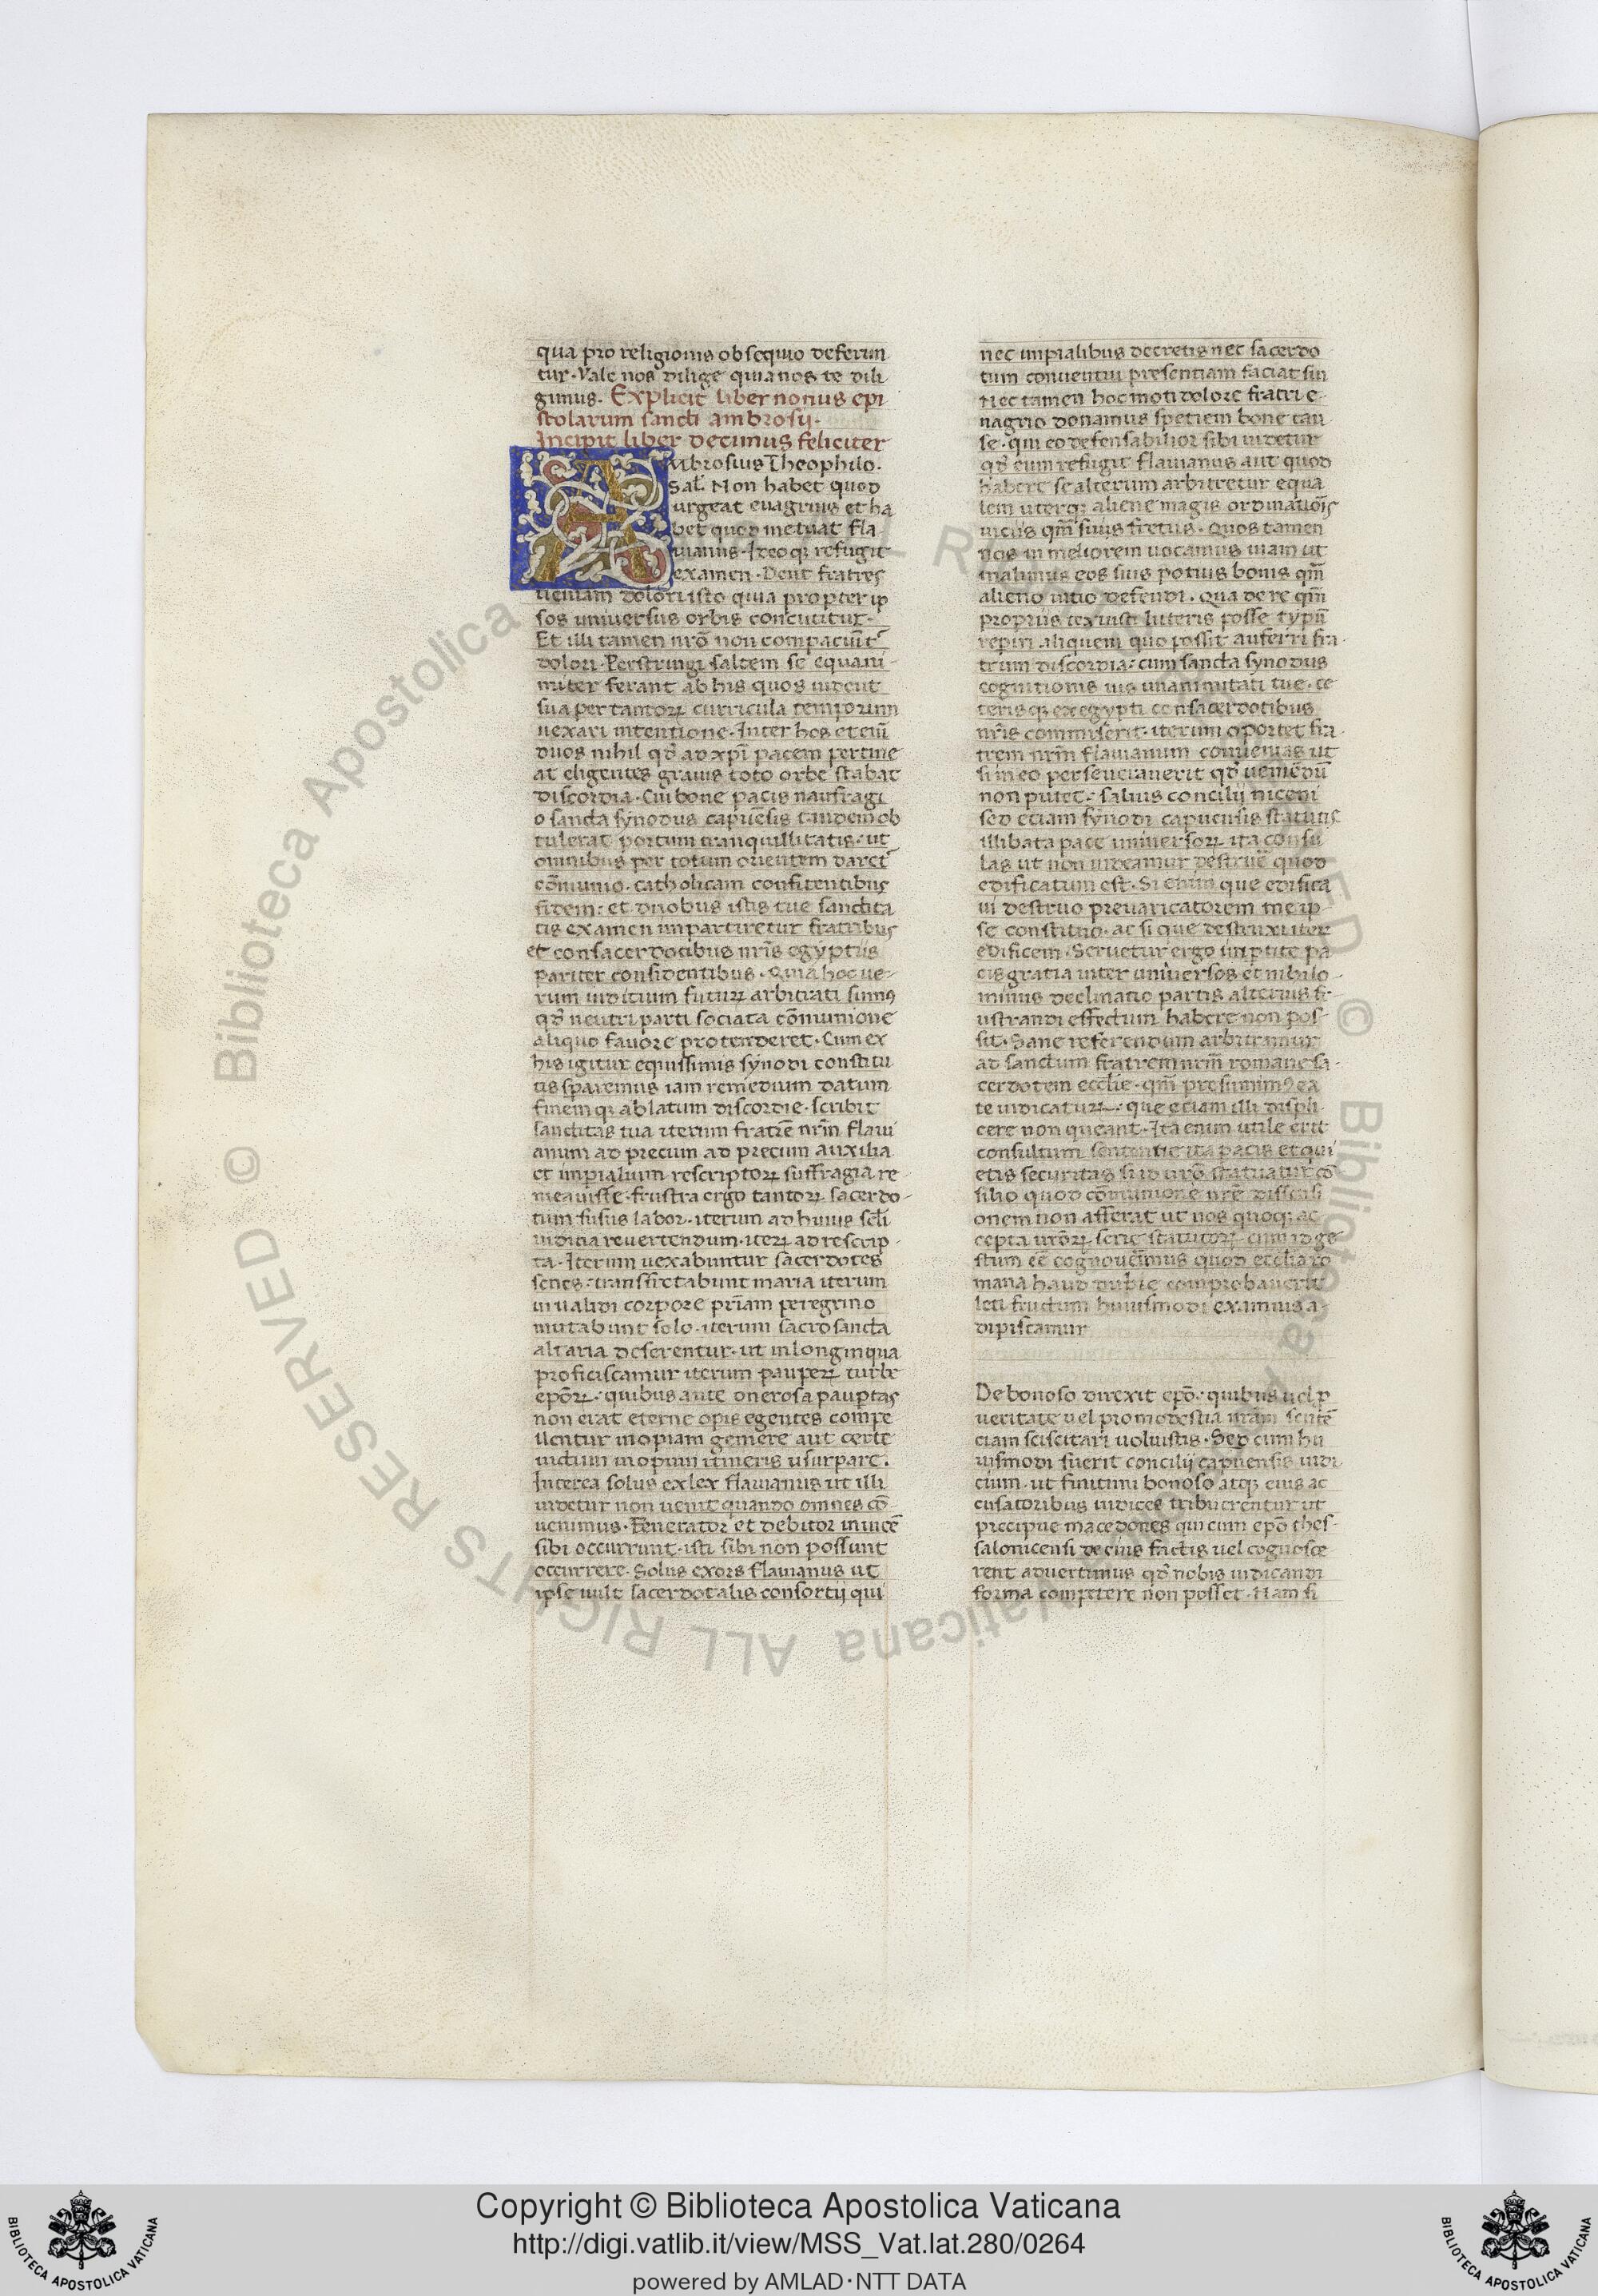 qua pro religionis obsequio deferun
tur. Vale nos dilige quia nos te dili
gimus. Explicit liber nonus epi
stolarum sancti ambrosij.
Incipit liber decimus feliciter
Ambrosius Theophilo.
Sal. Non habet quod
urgeat euagrius et ha
bet quod metuat fla
uianus. Ideoq; refugit
examen. Dent fratres
ueniam dolori isto quia propter ip
sos uniuersus orbis concutitur.
Et illi tamen nrō non compaciūt
dolori. Perstringi saltem se equani-
miter ferant ab his quos uident
sua per tantorꝝ curricula temporum
uexari intentione. Inter hos etenī
duos nihil qđ ad xp̄i pacem pertine
at eligentes grauis toto orbe stabat
discordia. Cui bone pacis naufragi
o sancta synodus capuēsis tandem ob
tulerat portum tranquillitatis. ut
omnibus per totum orientem daret
cōmunio. catholicam confitentibus
fidem: et duobus istis tue sanctita
tis examen impartiretur fratribus
et consacerdotibus nrīs egyptiis
pariter considentibus. Quia hoc ue-
rum iuditium futurꝝ arbitrati sumꝰ
qđ neutri parti sociata cōmunione
aliquo fauore protenderet. Cum ex
his igitur equissimis synodi constitu
tis sparemus iam remedium datum
finemq; ablatum discordie. scribit
sanctitas tua iterum fratrē nrm̄ flaui
anum ad precum ad precum auxilia
et impialium rescriptorꝝ suffragia re
meauisse. frustra ergo tantorꝝ sacerdo-
tum fusus labor. iterum ad huius scl̄i
iuditia reuertendum. iterꝝ ad rescrip-
ta. Iterum uexabuntur sacerdotes
senes. transfretabunt maria iterum
inualidi corpore priam peregrino
mutabunt solo. iterum sacrosancta
altaria deserentur. ut in longinqua
proficiscamur iterum pauperꝝ turbe
epōrꝝ. quibus ante onerosa pauptas
non erat eterne opis egentes compe
llentur inopiam gemere aut certe
uictum inopum itineris usurpare.
Interea solus exlex flauianus ut illi
uidetur non uenit quando omnes cō
uenimus. Fenerator et debitor inuicē
sibi occurrunt. isti sibi non possunt
occurrere. Solus exors flauianus ut
ipse uult sacerdotalis consortij qui
nec impialibus decretis nec sacerdo
tum conuentui presentiam faciat sui
Nec tamen hoc moti dolore fratri e-
uagrio donamus spetiem bone cau
se. qui eo defensabilior sibi uidetur
qđ eum refugit flauianus aut quod
habere se alterum arbitretur equa
lem uterq; aliene magis ordinatiōis
uiciis qm̄ suis fretus. Quos tamen
nos in meliorem uocamus uiam ut
malimus eos suis potius bonis qm̄
alieno uitio defendi. Qua de re qm̄
propriis texuisti litteris posse typū
repiri aliquem quo possit auferri fra-
trum discordia: cum sancta synodus
cognitionis ius unanimitati tue. ce
terisq; ex egypti consacerdotibus
nrīs commiserit. iterum oportet fra-
trem nrm̄ flauianum conuenias ut
si in eo perseuerauerit qđ ueniēdū
non putet: saluis concilij niceni
sed etiam synodi capuensis statutis
illibata pace uniuersorꝝ ita consu
las ut non uideamur destruē quod
edificatum est. Si enim que edifica
ui destruo preuaricatorem me ip-
se constituo. ac si que destruxi iterꝝ
edificem. Seruetur ergo impetite pa
cis gratia inter uniuersos et nihilo-
minus declinatio partis alterius fr-
ustrandi effectum habere non pos-
sit. Sane referendum arbitramur
ad sanctum fratrem nrm̄ romane sa-
cerdotem ecclīe. qm̄ presumimꝰ ea
te iudicaturꝝ: que etiam illi displi-
cere non queant. Ita enim utile erit
consultum sententie ita pacis et qui
etis securitas si id urō statuatur cō
silio quod cōmunione nrē dissensi
onem non afferat ut nos quoq; ac
cepta urōrꝝ serie statutorꝝ cum id ge
stum eē cognouēimus quod ecclīa ro
mana haud dubie comprobauerit
leti fructum huiusmodi examius a-
dipiscamur
De bonoso direxit epō. quibus uel p
ueritate uel pro modestia nram̄ sentē
ciam sciscitari uoluistis. Sed cum hu
iusmodi fuerit concilij capuensis iudi-
cium. ut finitimi bonoso atq; eius ac
cusatoribus iudices tribuerentur ut
precipue macedones qui cum epō thes-
salonicensi de eius factis uel cognosce
rent aduertimus qđ nobis iudicandi
forma competere non posset. Nam si
Copyright © Biblioteca Apostolica Vaticana
http://digi.vatlib.it/view/MSS_Vat.lat.280/0264
powered by AMLAD·NTT DATA
BIBLIOTECA APOSTOLICA VATICANA
BIBLIOTECA APOSTOLICA VATICANA
© Biblioteca Apostolica Vaticana ALL RIGHTS RESERVED